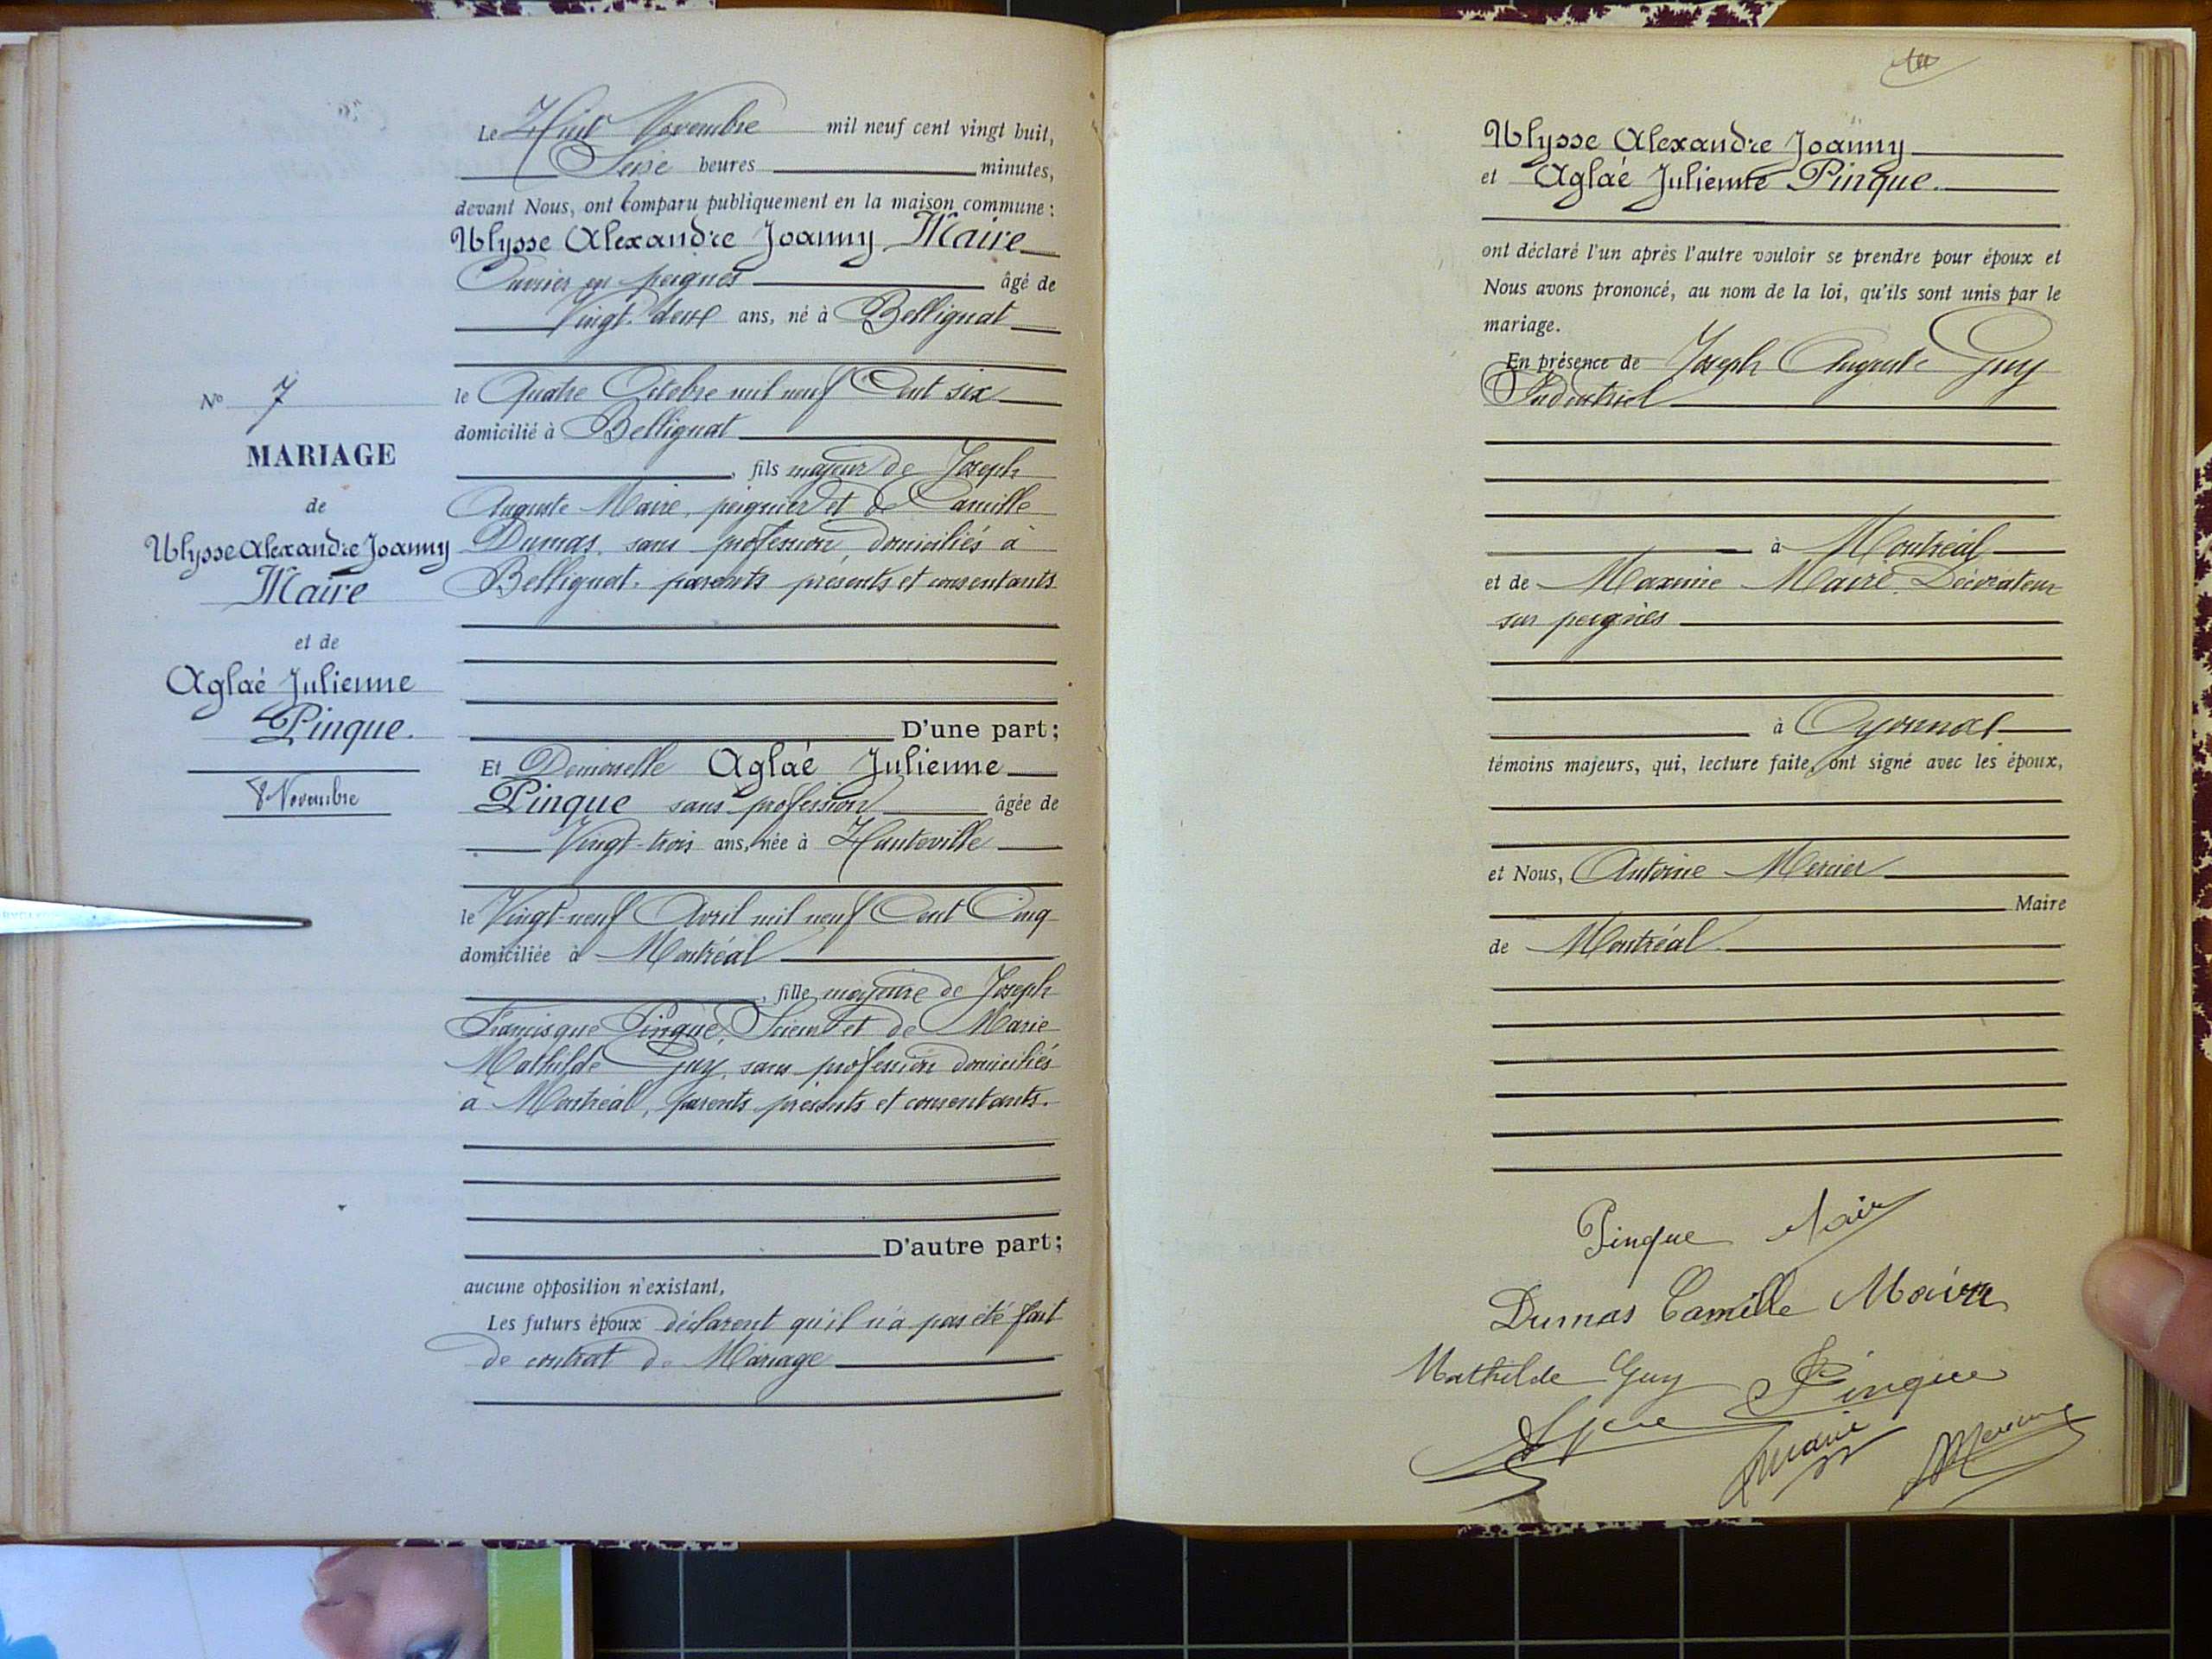 Le Huit Novembre mil neuf cent vingt huit,
Seize heures minutes,
devant Nous, ont comparu publiquement en la maison commune :
Ulysse Alexandre Joanny Maire
Ouvrier en peignes âgé de
Vingt-deux ans, né à Bellignat
le Quatre Octobre mil neuf Cent six
domicilié à Bellignat
, fils majeur de Joseph
Auguste Maire, peignier et de Camille
Dumas, sans profession, domiciliés à
Bellignat, parents présents et consentants
D'une part;
Et Demoiselle Aglaé Julienne
Pinque sans profession âgée de
Vingt-trois ans, née à Hauteville
le Vingt-neuf Avril mil neuf Cent Cinq
domiciliée à Montréal
, fille majeure de Joseph
Francisque Pinque, Scieur et de Marie
Mathilde Guy, sans profession domiciliés
à Montréal, parents présents et consentants.
D'autre part;
aucune opposition n'existant,
Les futurs époux déclarent qu'il n'a pas été fait
de contrat de Mariage
No 7
MARIAGE
de
Ulysse Alexandre Joanny
Maire
et de
Aglaé Julienne
Pinque.
8 Novembre
Ulysse Alexandre Joanny
et Aglaé Julienne Pinque.
ont déclaré l'un après l'autre vouloir se prendre pour époux et
Nous avons prononcé, au nom de la loi, qu'ils sont unis par le
mariage.
En présence de Joseph Auguste Guy
Industriel
à Montréal
et de Maxime Maire, Décorateur
sur peignes
à Oyonnax
témoins majeurs, qui, lecture faite, ont signé avec les époux,
et Nous, Antoine Mercier
Maire
de Montréal
Pinque Maire
Dumas Camille Maire
Mathilde Guy Pinque
Maire